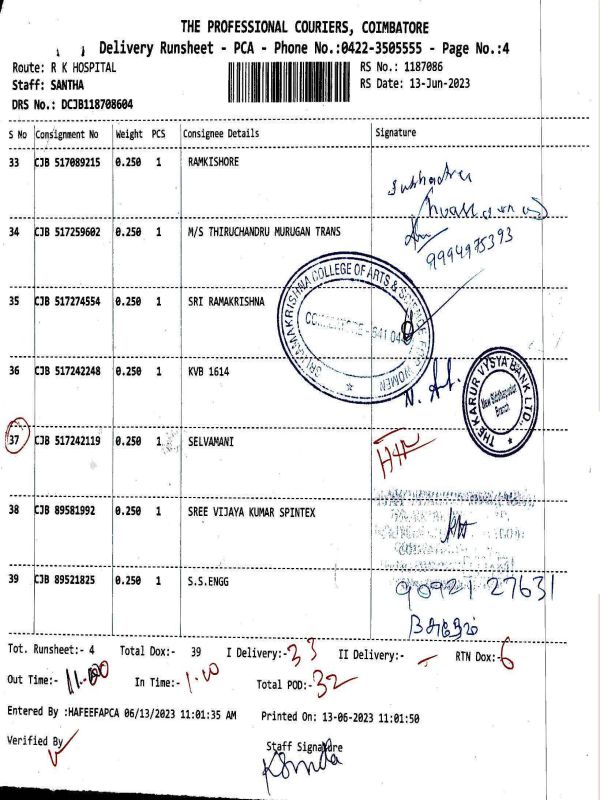 THE PROFESSIONAL COURIERS, COIMBATORE
Delivery Runsheet - PCA - Phone No.:0422-3505555 - Page No.:4
Route: R K HOSPITAL
RS No.: 1187086
Staff: SANTHA
RS Date: 13-Jun-2023
DRS No.: DCJB118708604
S No Consignment No Weight PCS Consignee Details Signature
33 CJB 517089215 0.250 1 RAMKISHORE
34 CJB 517259602 0.250 1 M/S THIRUCHANDRU MURUGAN TRANS
9994975393
35 CJB 517274554 0.250 1 SRI RAMAKRISHNA
SRI RAMAKRISHNA COLLEGE OF ARTS & SCIENCE FOR WOMEN
COIMBATORE - 641 044
36 CJB 517242248 0.250 1 KVB 1614
THE KARUR VYSYA BANK LTD.,
New Siddhapudur
Branch
37 CJB 517242119 0.250 1 SELVAMANI
38 CJB 89581992 0.250 1 SREE VIJAYA KUMAR SPINTEX
39 CJB 89521825 0.250 1 S.S.ENGG
90921 27631
Tot. Runsheet:- 4 Total Dox:- 39 I Delivery:- 33 II Delivery:- - RTN Dox:- 6
Out Time:- 11.00 In Time:- 1.00 Total POD:- 32
Entered By :HAFEEFAPCA 06/13/2023 11:01:35 AM Printed On: 13-06-2023 11:01:50
Verified By
Staff Signature